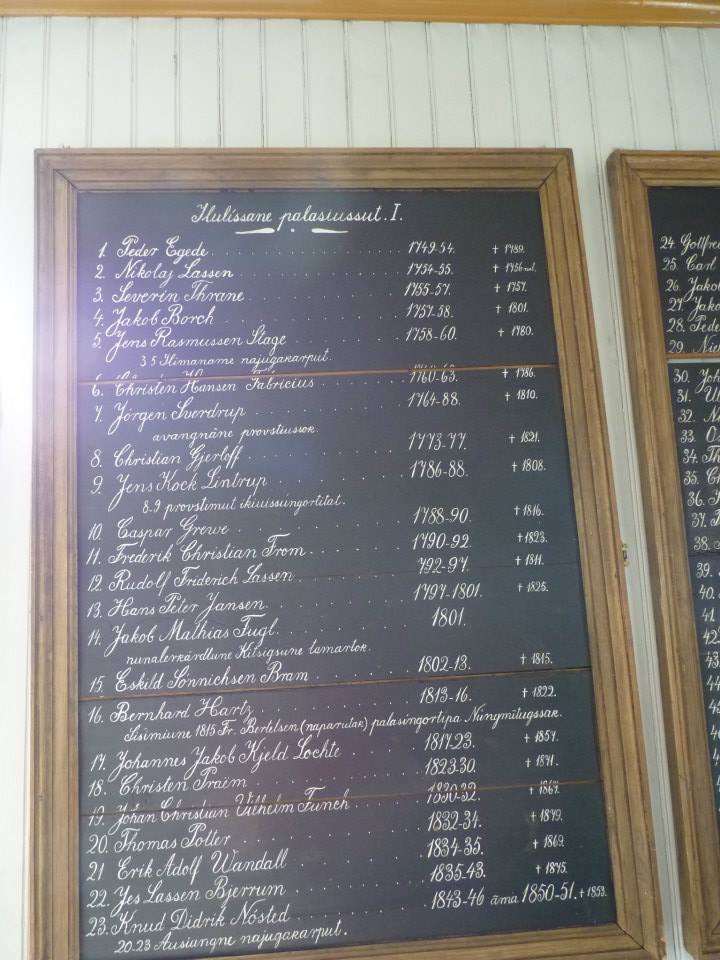 Ilulissane palasiussut. I.
1. Peder Egede 1749-54. † 1789.
2. Nikolaj Lassen 1754-55. † 1756
3. Severin Thrane 1755-57. † 1757.
4. Jakob Borch 1757-58. † 1801.
5. Jens Rasmussen Stage 1758-60. † 1780.
3 5 Ilimaname najugakarput.
6. Christen Hansen Fabricius 1760-63. † 1786.
7. Jörgen Sverdrup 1764-88. † 1810.
avangnäne provstiussok.
8. Christian Gjerloff 1773-77. † 1821.
9. Jens Kock Lintrup 1786-88. † 1808.
8.9 provstimut ikiuissüngortitat.
10. Caspar Grewe 1788-90. † 1816.
11. Frederik Christian From 1790-92. † 1823.
12. Rudolf Friderich Lassen 792-97. † 1811.
13. Hans Peter Jansen 1797-1801. † 1825.
14. Jakob Mathias Fugl. 1801.
nunalerkärdlune Kitsigsune tamartok.
15. Eskild Sönnichsen Bram 1802-13. † 1815.
16. Bernhard Hartz 1813-16. † 1822.
Sisimiune 1815 Fr. Bertelsen (naparutak) palasingortipa Nüngmiugssak.
17. Johannes Jakob Kjeld Lochte 1817-23. † 1857.
18. Christen Praëm 1823-30. † 1871.
19. Johan Christian Vilhelm Funch 1830-32. † 1867.
20. Thomas Potter 1832-34. † 1879.
21 Erik Adolf Wandall 1834-35. † 1869.
22. Jes Lassen Bjerrum 1835-43. † 1875.
23. Knud Didrik Nösted 1843-46 äma 1850-51. † 1853.
20.23 Ausiangne najugakarput.
24. Gottfre
25. Carl
26. Jakob
27. Jako
28. Pede
29. Nie
30. Joh
31. U
32. N
33. O
34. Th
35. C
36.
37.
38.
39.
40.
41
42.
43.
44